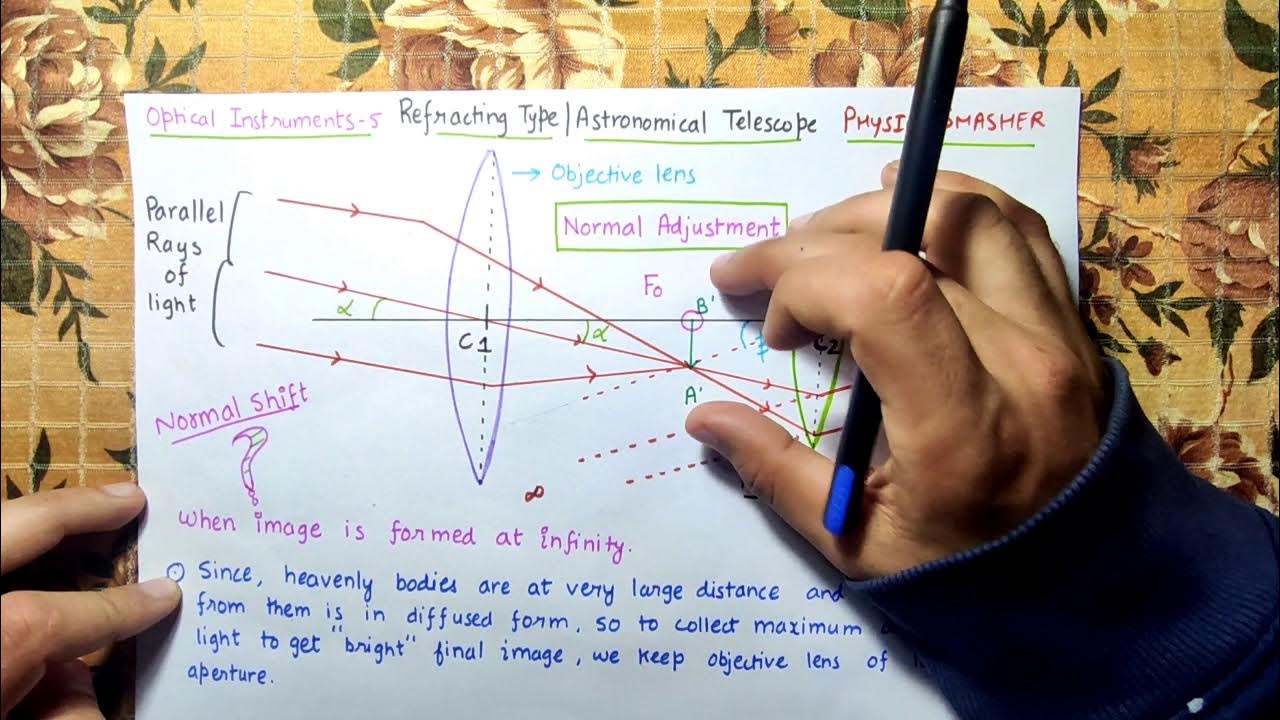 Optical Instruments-5 Refracting Type | Astronomical Telescope
→ Objective lens
Normal Adjustment
Parallel
Rays
of
light
F₀
α
B'
α
C1
C2
A'
Normal Shift
?
∞
When image is formed at infinity.
⊙ Since, heavenly bodies are at very large distance and
from them is in diffused form. So to collect maximum
light to get "bright" final image, we keep objective lens of
aperture.